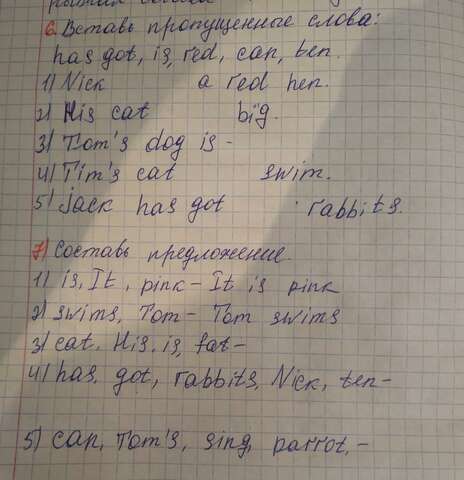 6. Вставь пропущенные слова:
has got, is, red, can, ten.
1) Nick a red pen.
2) His cat big.
3) Tom's dog is -
4) Tim's cat swim.
5) Jack has got rabbits.
7) Составь предложение.
1) is, It, pink - It is pink
2) swims, Tom - Tom swims
3) cat, His, is, fat -
4) has, got, rabbits, Nick, ten -
5) can, Tom's, sing, parrot, -